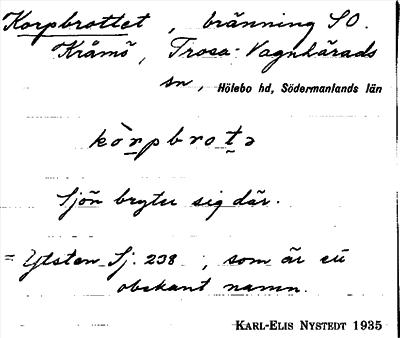 Korpbrottet, bränning SO.
Kråmö, Trosa-Vagnhärads
sn, Hölebo hd, Södermanlands län
kòrpbrotə
Sjön bryter sig där.
= Ytsten Sj. 238, som är ett
obekant namn.
KARL-ELIS NYSTEDT 1935